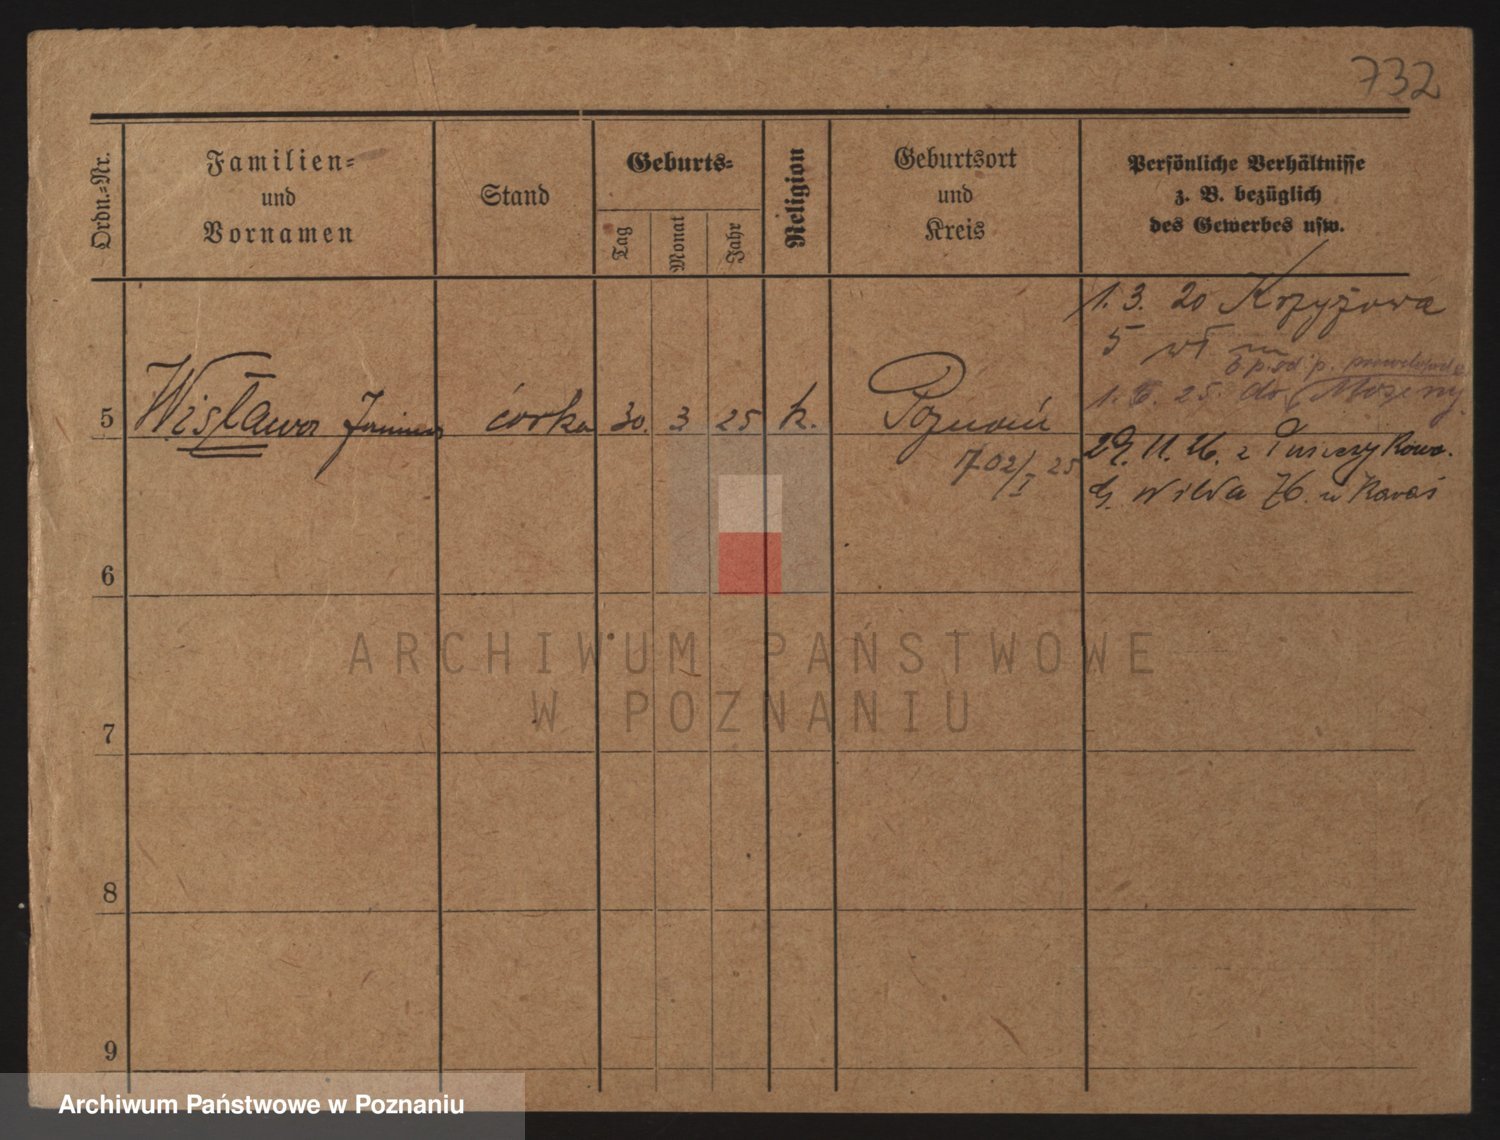 732
Ordn.=Nr.
Familien=
und
Vornamen
Stand
Geburts=
Tag
Monat
Jahr
Religion
Geburtsort
und
Kreis
Persönliche Verhältnisse
z. B. bezüglich
des Gewerbes usw.
1. 3. 20 Krzyżowa
5 wł m
5 Wisława Janina córka 30. 3 25 k. Poznań
1702/I 25
1. 6. 25. do Mosiny
29. 11. 26. z Puszczykowa.
G. Wilda 76. u
6
7
8
9
ARCHIWUM PAŃSTWOWE
W POZNANIU
Archiwum Państwowe w Poznaniu